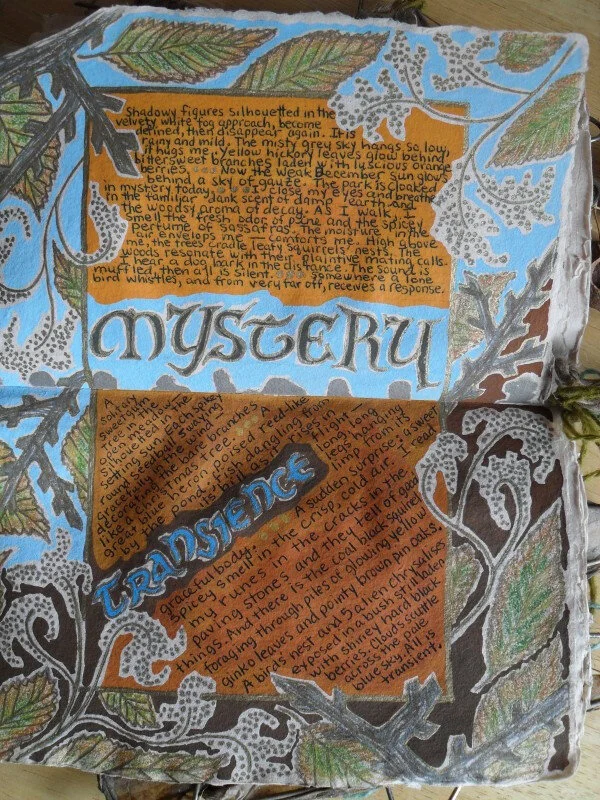 Shadowy figures silhouetted in the
velvety white fog approach, become
defined, then disappear again. It is
rainy and mild. The misty grey sky hangs so low,
it hugs me. Yellow hickory leaves glow behind
bittersweet branches laden with luscious orange
berries. Now the weak December sun glows
behind a sky of gauze. The park is cloaked
in mystery today. I close my eyes and breathe
in the familiar dank scent of damp earth and
the woodsy aroma of decay. As I walk, I
smell the fresh odor of pine and the spicy
perfume of sassafras. The moisture in the
air envelops me - comforts me. High above
me, the trees cradle leafy squirrels' nests. The
woods resonate with their plaintive croaking calls.
I hear a dog bark in the distance. The sound is
muffled, then all is silent. Somewhere a lone
bird whistles, and from very far off, receives a response.
MYSTERY
solitary
sweetgum
tree in the
meadow
silhouetted in the
rain, each spikey
seedball swaying
gracefully in the wind
decorating the bare branches
like a christmas tree.
great blue heron, poised reed-like
by the pond. Fish dangling from
its as it flies in
flight
long, long
legs holding
limp from its
TRANSIENCE
graceful body. A sudden surprise: a sweet
spicey smell in the crisp, cold air. I read
my runes in the cracks in the
paving stones and they tell of good
things. And there is the coal black squirrel
foraging through piles of glowing yellow
ginko leaves and pointy brown pin oaks.
A birds nest and 5 alien chrysaliss
exposed in a bush, still laden
with shiney hard black
berries. Clouds scuttle
across the pale
blue sky. All is
transient.